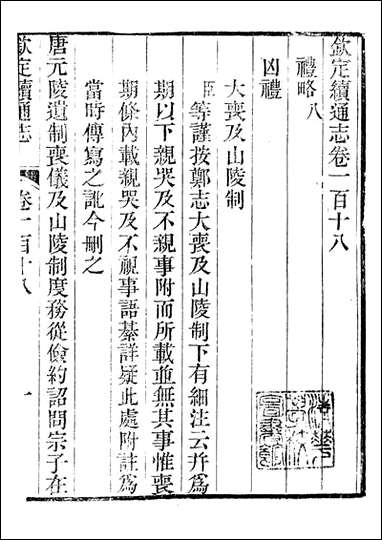 欽定續通志卷一百十八
禮略八
凶禮
大喪及山陵制
臣等謹按鄭志大喪及山陵制下有細注云幷爲
期以下親哭及不親事附而所載並無其事惟喪
期條內載親哭及不視事語綦詳疑此處附註爲
當時傳寫之訛今刪之
唐元陵遺制喪儀及山陵制度務從儉約詔問宗子在
欽定續通志
卷一百十八
一